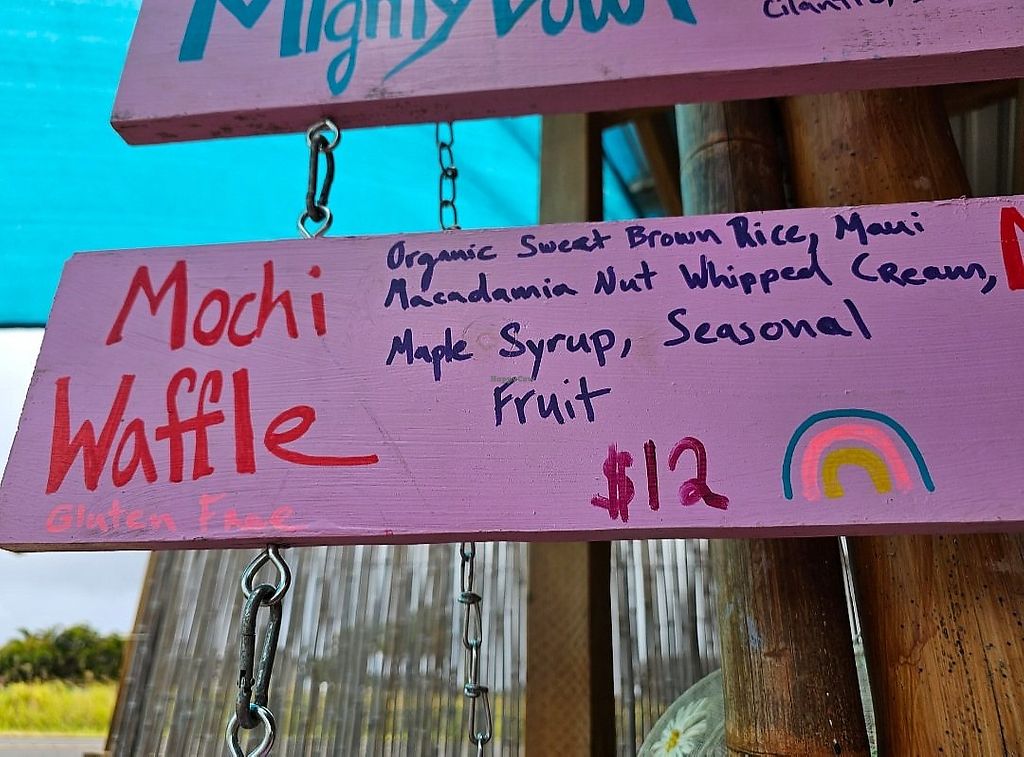 Mighty Bowl
Cilantro,
Mochi
Waffle
Gluten Free
Organic Sweet Brown Rice, Maui
Macadamia Nut Whipped Cream,
Maple Syrup, Seasonal
Fruit
$12
HappyCow